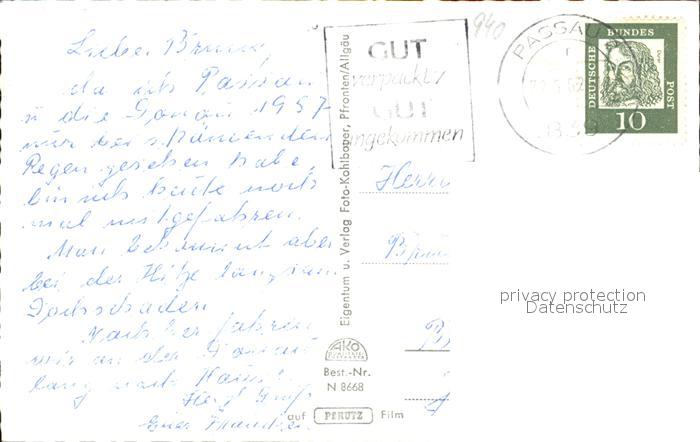 Lieber Bruno,
da ich Passau
u die Donau 1957
nur bei strömendem
Regen gesehen habe,
bin ich heute noch
mal mitgefahren.
Man bekommt aber
bei der Hitze langsam
Dachschaden.
Nachher fahren
wir an der Donau
lang nach Hause.
Herzl Gruß
Euer
940
GUT
verpackt
GUT
angekommen
PASSAU
DEUTSCHE BUNDES POST
Dürer
10
Eigentum u. Verlag Foto-Kohlbauer, Pfronten/Allgäu
Herrn
privacy protection
Datenschutz
AKO
Best.-Nr.
N 8668
auf PERUTZ Film